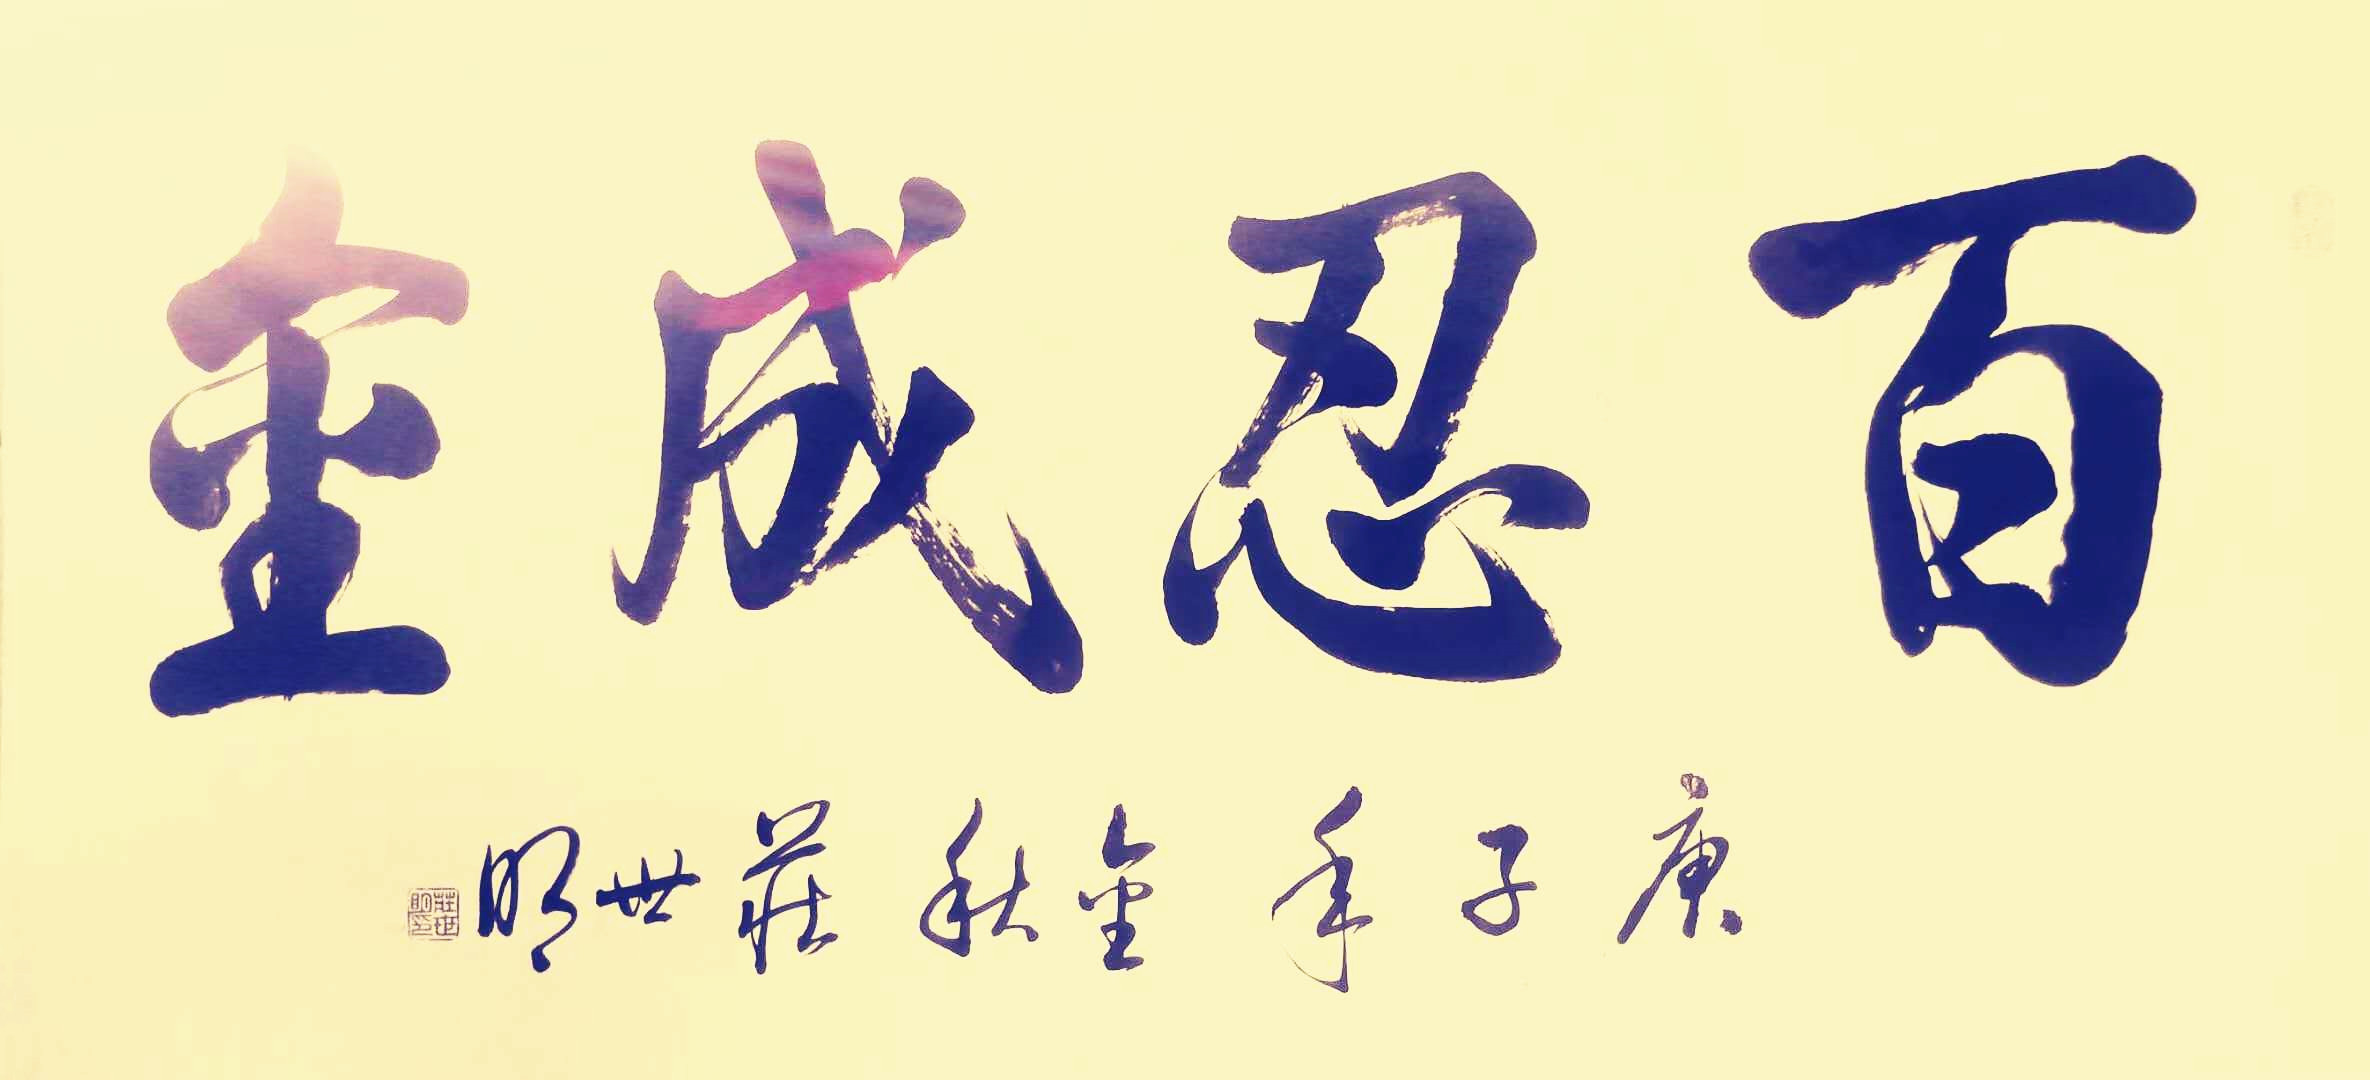 百忍成金
庚子年金秋莊世明
莊世明印